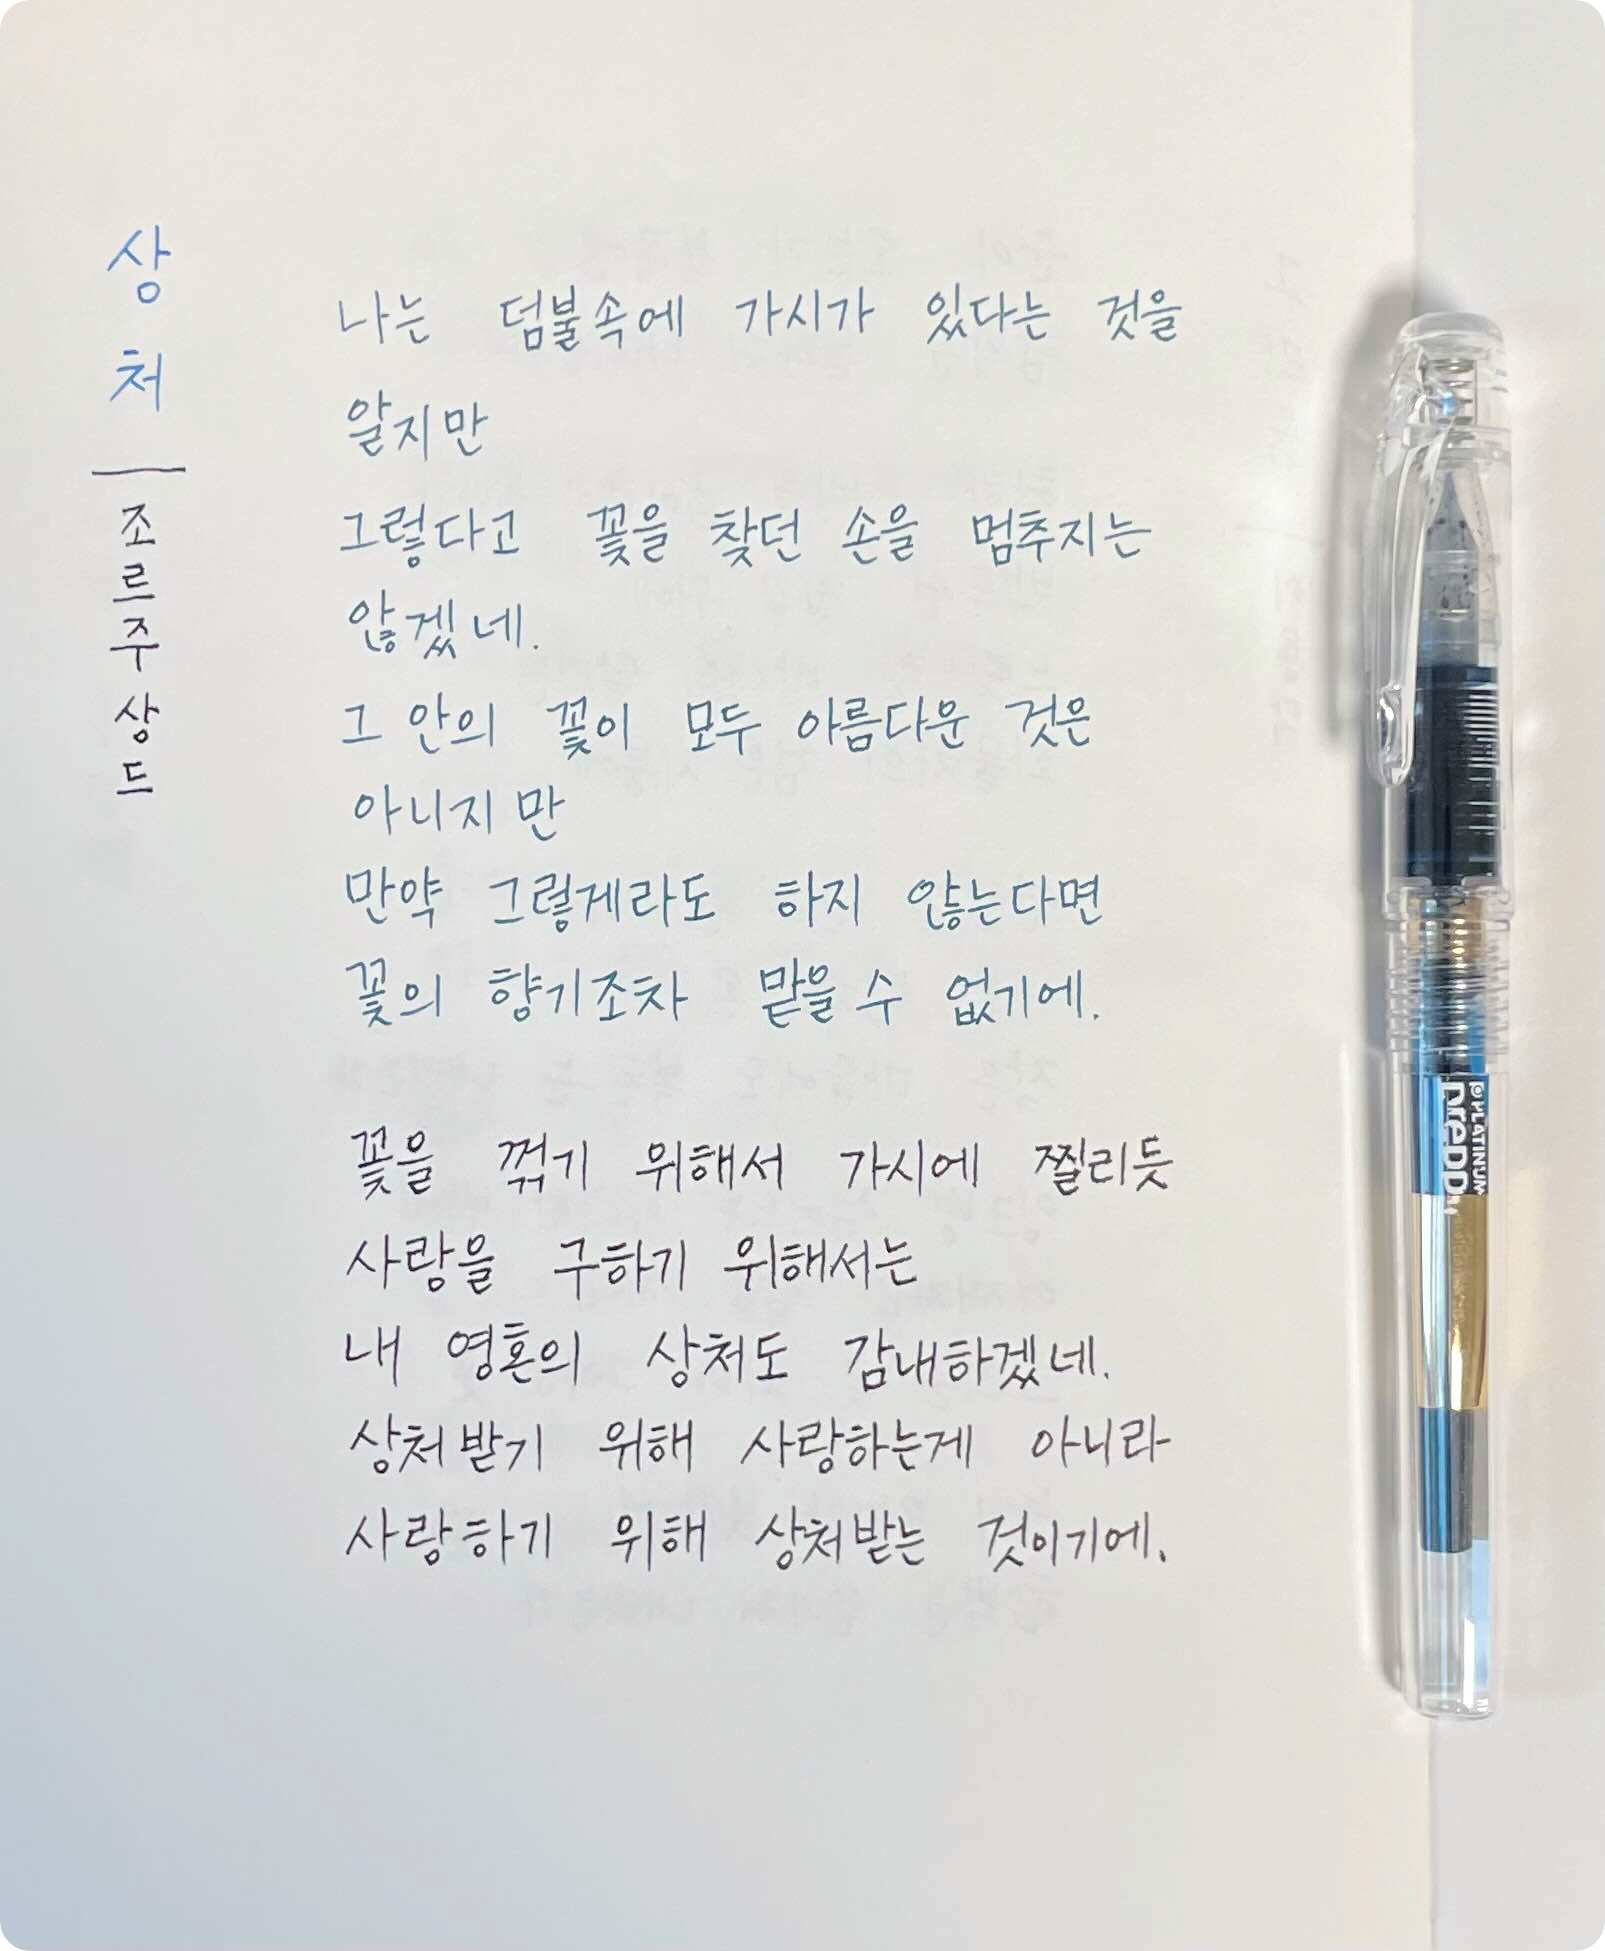 상처
조르주 상드
나는 덤불속에 가시가 있다는 것을
알지만
그렇다고 꽃을 찾던 손을 멈추지는
않겠네.
그 안의 꽃이 모두 아름다운 것은
아니지만
만약 그렇게라도 하지 않는다면
꽃의 향기조차 맡을 수 없기에.
꽃을 꺾기 위해서 가시에 찔리듯
사랑을 구하기 위해서는
내 영혼의 상처도 감내하겠네.
상처받기 위해 사랑하는게 아니라
사랑하기 위해 상처받는 것이기에.
PLATINUM